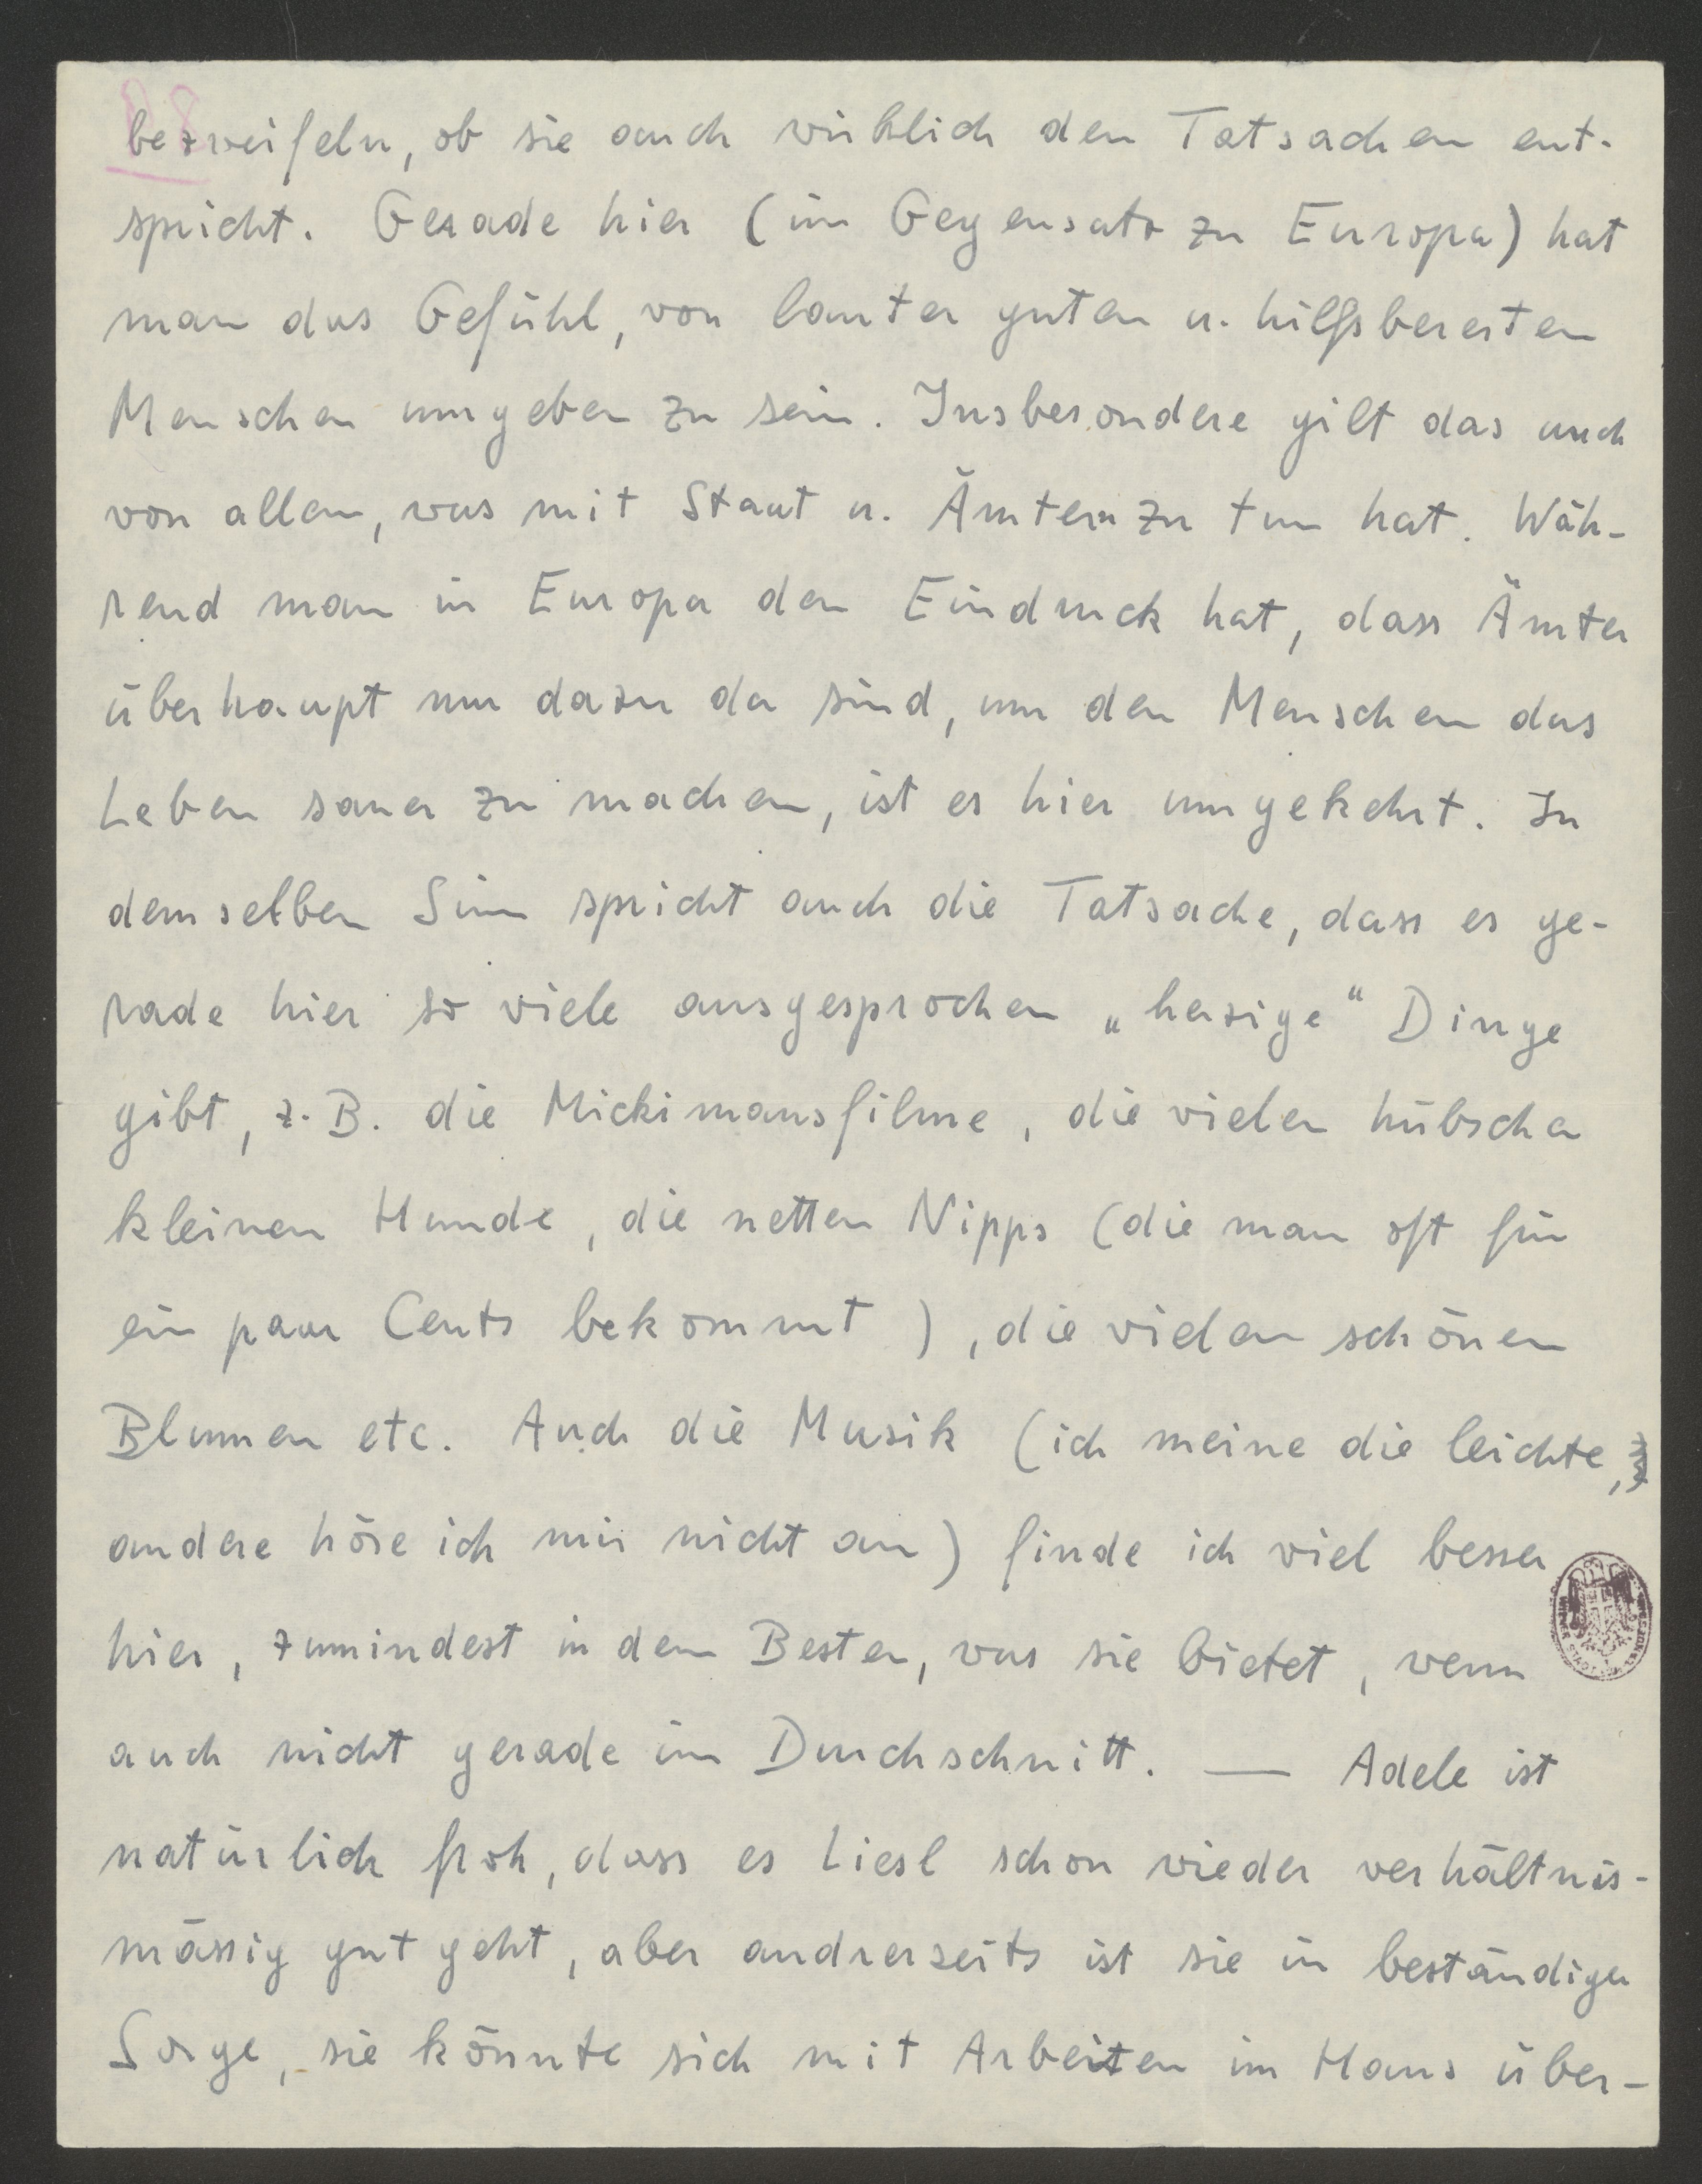 bezweifeln, ob sie auch wirklich den Tatsachen ent-
spricht. Gerade hier (im Gegensatz zu Europa) hat
man das Gefühl, von lauter guten u. hilfsbereiten
Menschen umgeben zu sein. Insbesondere gilt das auch
von allem, was mit Staat u. Ämtern zu tun hat. Wäh-
rend man in Europa den Eindruck hat, dass Ämter
überhaupt nur dazu da sind, um den Menschen das
Leben sauer zu machen, ist es hier umgekehrt. In
demselben Sinn spricht auch die Tatsache, dass es ge-
rade hier so viele ausgesprochen „herzige“ Dinge
gibt, z. B. die Mickimausfilme, die vielen hübschen
kleinen Hunde, die netten Nipps (die man oft für
ein paar Cents bekommt), die vielen schönen
Blumen etc. Auch die Musik (ich meine die leichte,
andere höre ich mir nicht an) finde ich viel besser
hier, zumindest in dem Besten, was sie bietet, wenn
auch nicht gerade im Durchschnitt. — Adele ist
natürlich froh, dass es Liesl schon wieder verhältnis-
mässig gut geht, aber andrerseits ist sie in beständiger
Sorge, sie könnte sich mit Arbeiten im Haus über-